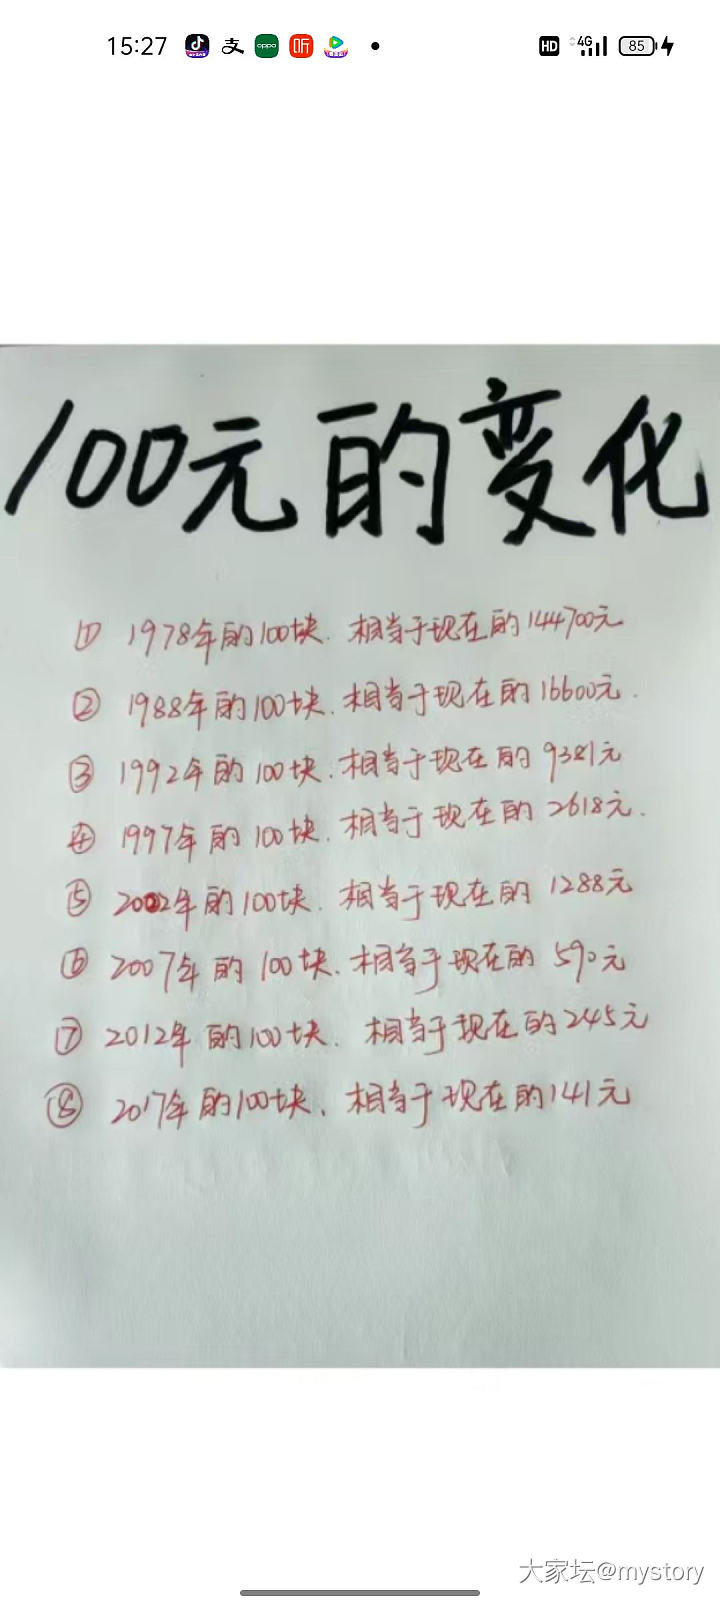 15:27
支
oppo
听
HD
4G
85
100元的变化
① 1978年的100块.相当于现在的144700元
② 1988年的100块.相当于现在的16600元.
③ 1992年的100块.相当于现在的9381元
④ 1997年的100块.相当于现在的2618元.
⑤ 2002年的100块.相当于现在的1288元
⑥ 2007年的100块.相当于现在的590元
⑦ 2012年的100块.相当于现在的245元
⑧ 2017年的100块.相当于现在的141元
大家坛@mystory